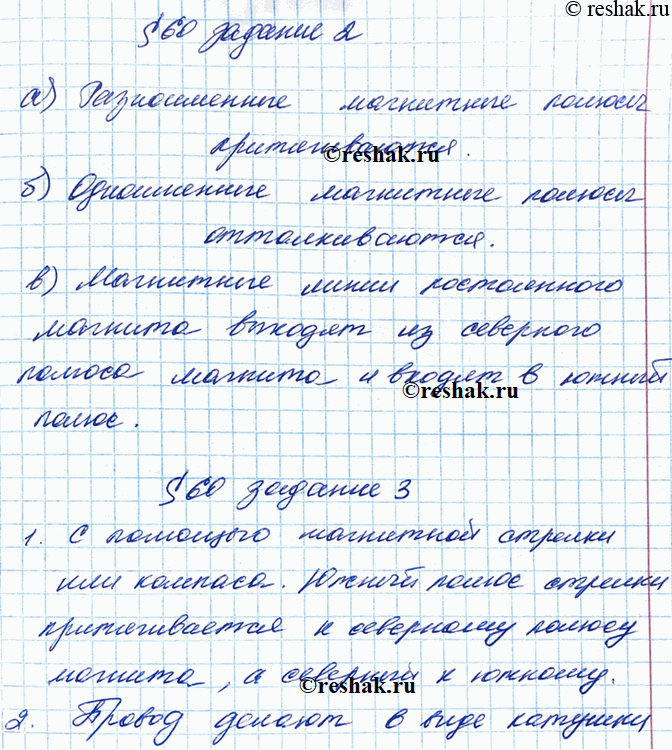 © reshak.ru
§60 задание 2
а) Разноименные магнитные полюсы
притягиваются.
©reshak.ru
б) Одноименные магнитные полюсы
отталкиваются.
в) Магнитные линии постоянного
магнита выходят из северного
полюса магнита и входят в южный
©reshak.ru
полюс.
§60 задание 3
1. С помощью магнитной стрелки
или компаса. Южный полюс стрелки
притягивается к северному полюсу
магнита, а северный к южному.
©reshak.ru
2. Провод делают в виде катушки